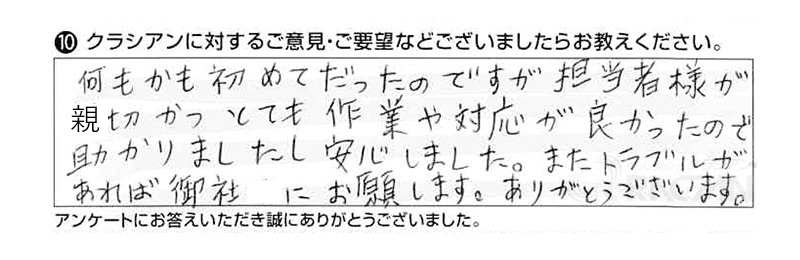 ⑩ クラシアンに対するご意見・ご要望などございましたらお教えください。
何もかも初めてだったのですが担当者様が
親切かつとても作業や対応が良かったので
助かりましたし安心しました。またトラブルが
あれば御社にお願します。ありがとうございます。
アンケートにお答えいただき誠にありがとうございました。